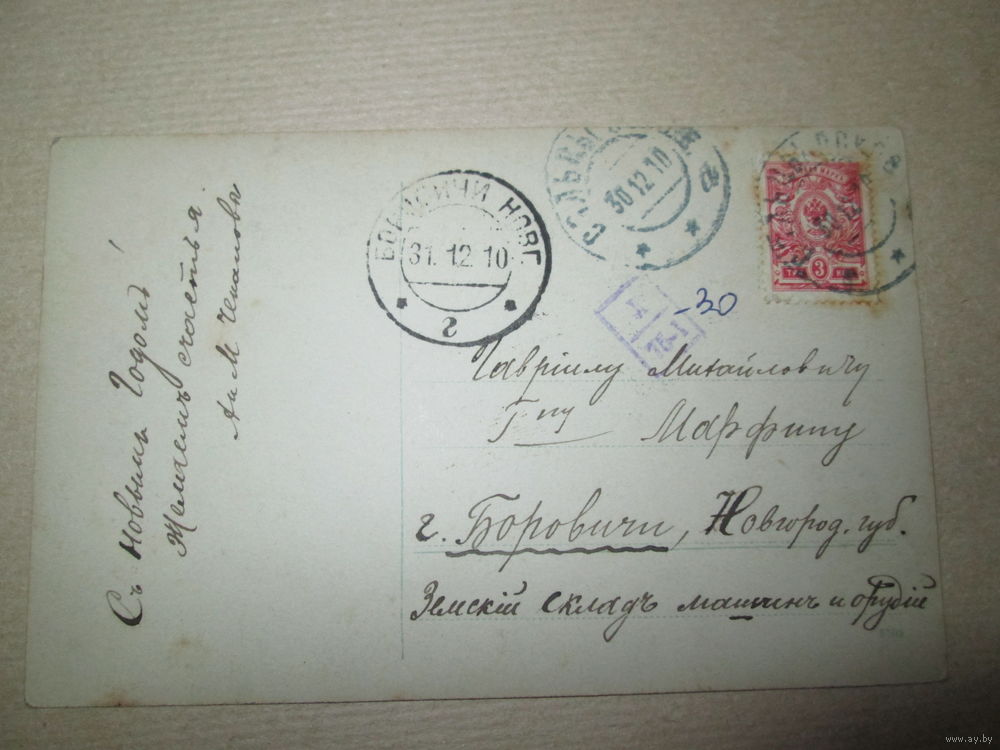 Съ Новымъ Годомъ!
Желаемъ счастья.
А и М
БОРОВИЧИ НОВГ.
31.12.10
г
30.12.10
а
3
-30
Гавріилу Михайловичу
Г-ну Марфину
г. Боровичи, Новгород. губ.
Земскій складъ машинъ и орудій
www.ay.by